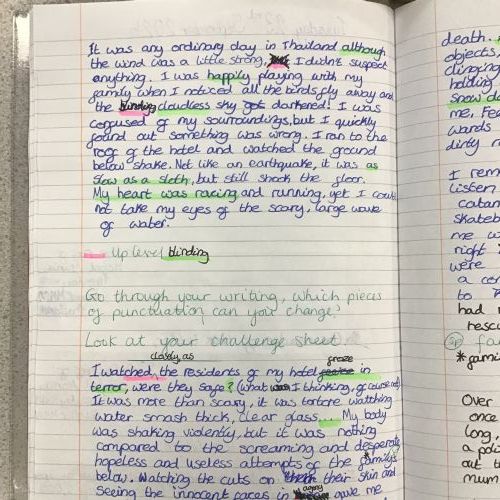 It was any ordinary day in Thailand although
the wind was a little strong, I didn't suspect
anything. I was happily playing with my
family when I noticed all the birds fly away and
the blinding cloudless sky got darkened! I was
confused of my sourroundings, but I quickly
found out something was wrong. I ran to the
roof of the hotel and watched the ground
below shake. Not like an earthquake, it was as
slow as a sloth, but still shook the floor.
My heart was racing and running, yet I could
not take my eyes of the scary, large wave
of water.
Up level blinding
Go through your writing, which pieces
of punctuation can you change?
Look at your challenge sheet
closely, as froze
I watched, the residents of my hotel in
terror, were they safe? (What was I thinking, of course not)
It was more than scary, it was torture watching
water smash thick, clear glass... My body
was shaking violently, but it was nothing
compared to the screaming and desperate,
hopeless and useless attempts of the family's
below. Watching the cuts on their skin and
agony
seeing the innocent faces in gave me
death.
objects,
clinging
holding
snow
me. Fea
wards
dirty
I rem
listen
catan
skateb
me w
right
were
a co
to
had
resc
sp
*fami
Over
once
long,
a pol
out t
mum